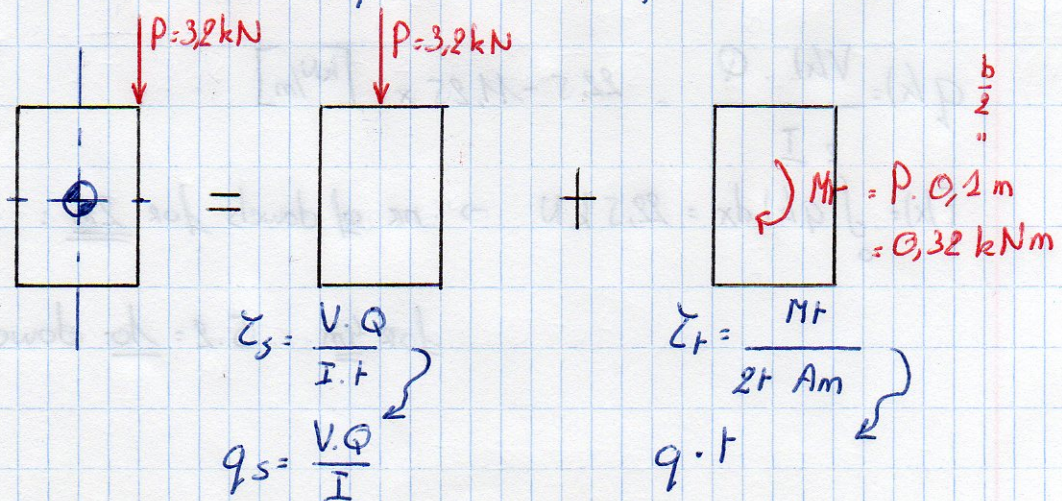 P=3,2kN
P=3,2kN
b
2
=
= + Mt = P. 0,1 m
= 0,32 kNm
τs = V.Q / I.t
τt = Mt / 2t Am
qs = V.Q / I
q . t